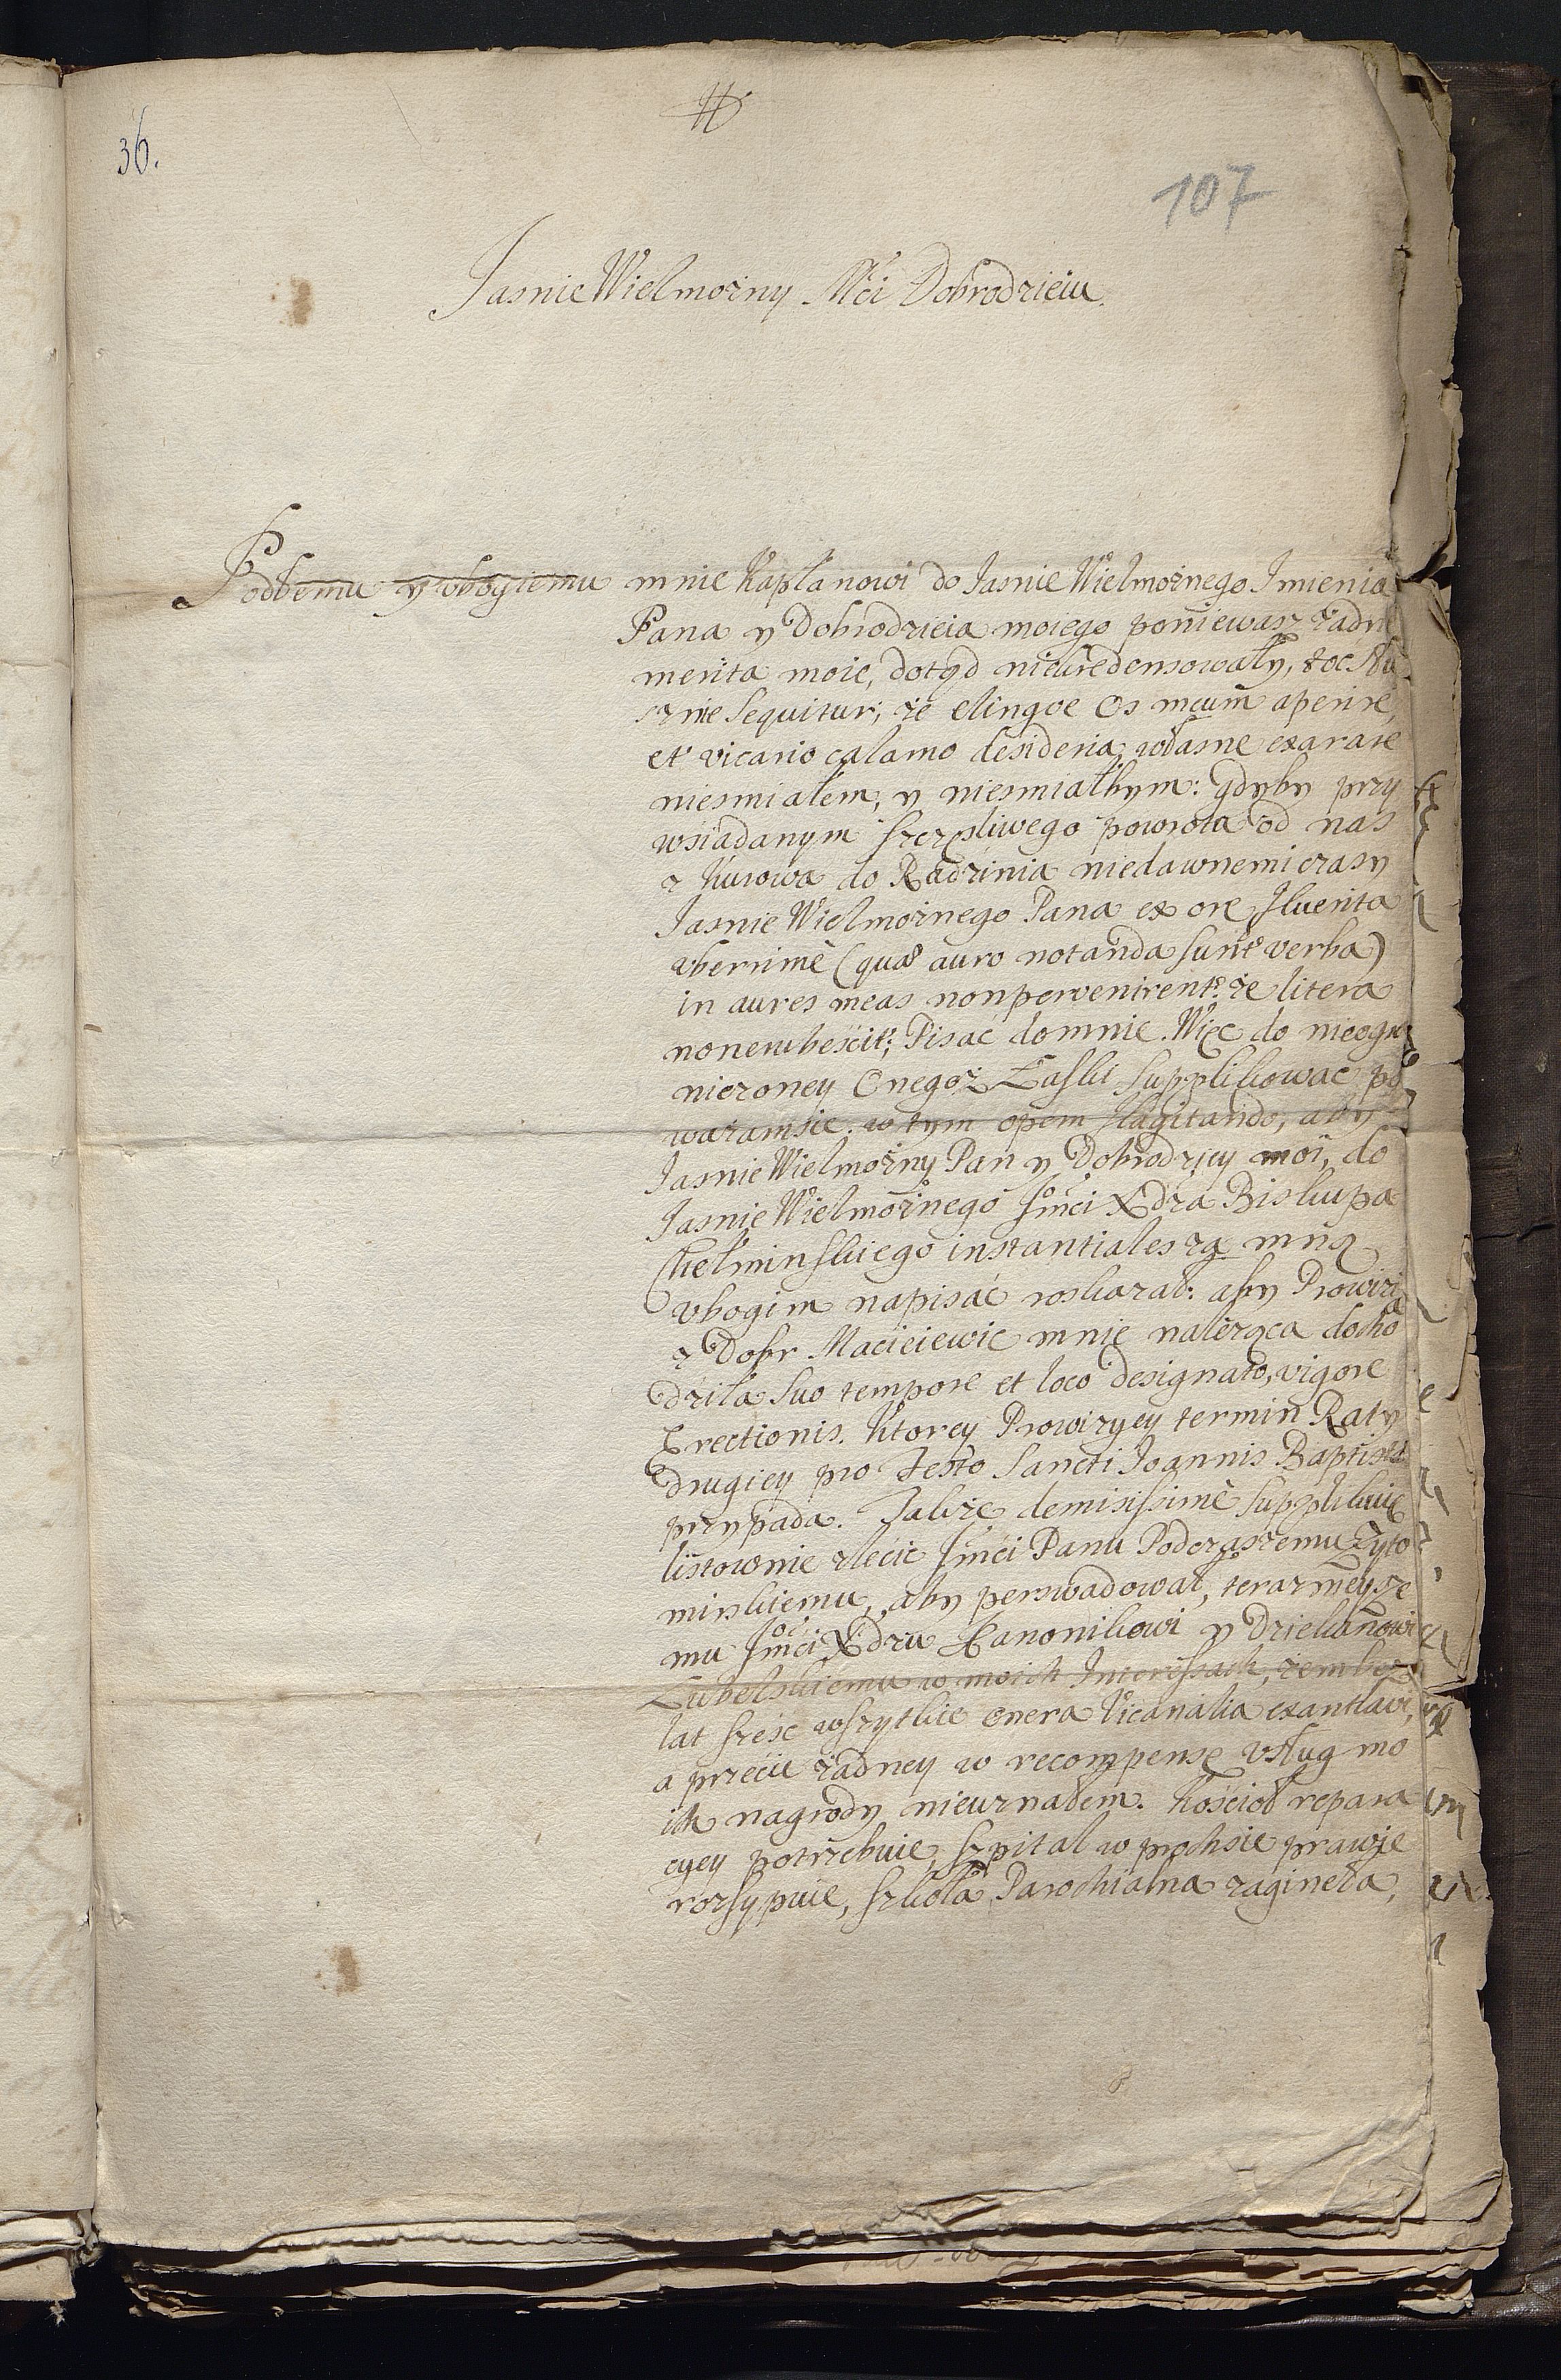 36.
107
Jasnie Wielmożny Mći Dobrodzieiu.
Podłemu y vbogiemu mnie Kapłanowi do Jasnie Wielmożnego Imienia
Pana y Dobrodzieia moiego poniewasz żadne
merita moie, dotąd nie kredensowały, toc słu
sznie sequitur; że elingve Os meum aperire,
et vicario calamo desideria własne exarare
niesmiałem, y niesmiałbym: gdyby przy
wsiadanym szczęsliwego powrota od nas
z Kurowa do Radzinia niedawnemi czasy
Jasnie Wielmożnego Pana ex ore fluenta
vberrimè (quæ auro notanda sunt verba)
in aures meas non pervenirent: że litera
non erubescit; Pisać do mnie. Więc do nieogra
niczoney Onegoż Łaski supplikowac po
wazamsie. w tym opem flagitando, aby
Jasnie Wielmożny Pan y Dobrodziey moi, do
Jasnie Wielmożnego Jmci Xdza Biskupa
Chełminskiego instantiales za mną
vbogim napisać roskazał: aby Prowizia
z Dobr Macieiewic mnie naleząca docho
dziła suo tempore et loco designato, vigore
Erectionis. Ktorey Prowizyey termin Raty
drugiey pro Festo Sancti Joannis Baptistæ
przypada. Takze demisissimè supplikuię
listownie zlecic Jmci Panu Podczaszemu Zyto
mirskiemu, aby perswadował, terazneysze
mu Jmci Xdzu Kanonikowi y Dziekanowi
Lubelskiemu w moich Interessach, zem bez
lat szesc wszytkie onera Vicarialia exantlavi,
a przecie żadney w recompensę vsług mo
ich nagrody nieuznałem. Kościoł repara
cyey potrzebuie, szpital w prochsie prawie
rozsypuie, szkoła Parochialna zagineła,